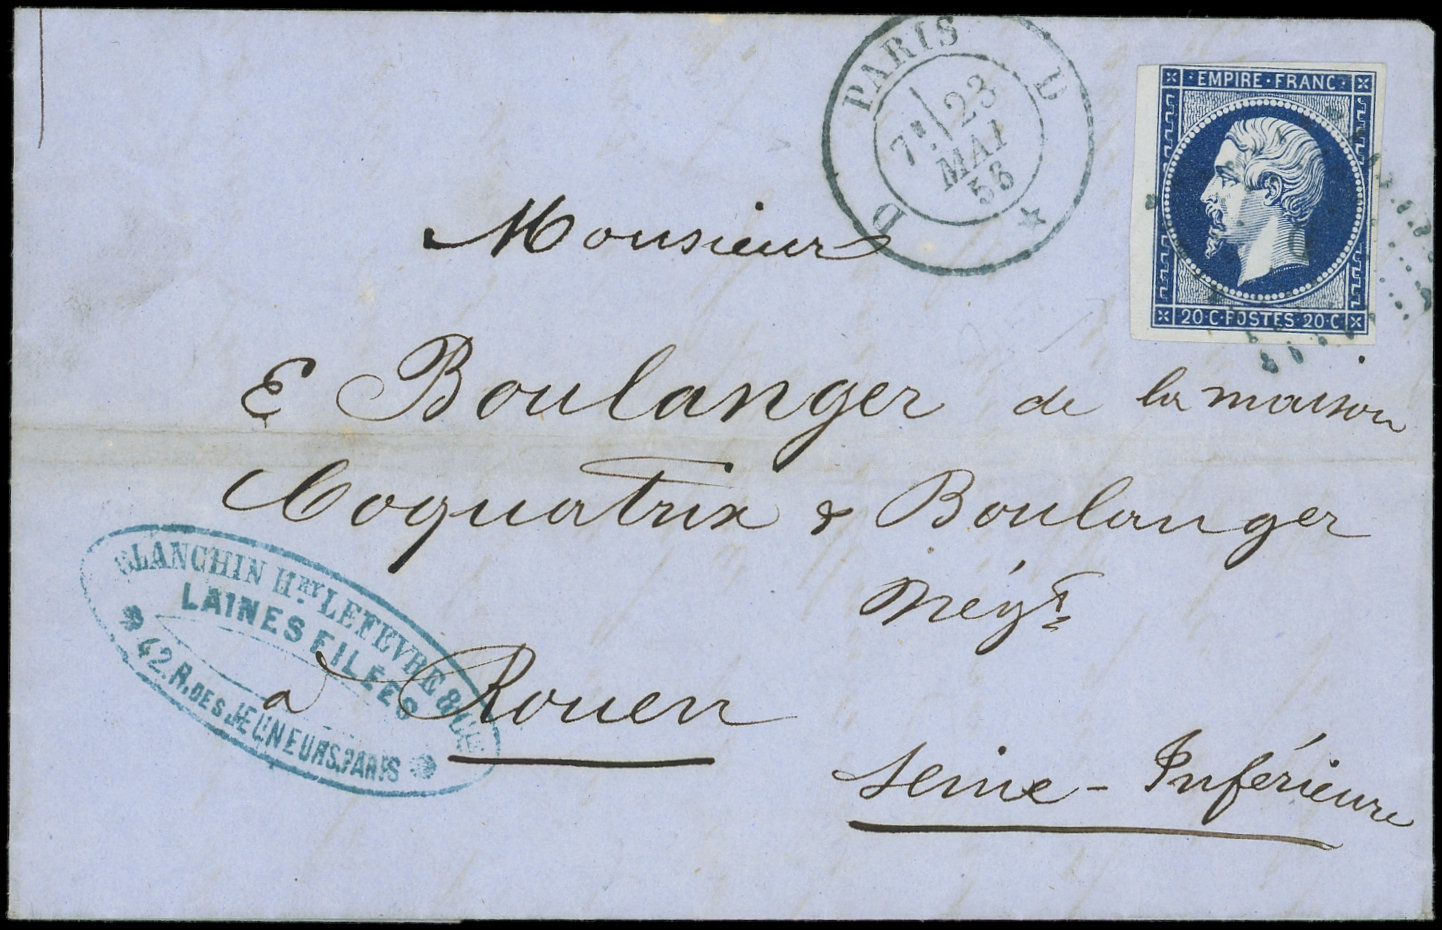 PARIS
D
7ᴱ 23
MAI
58
D
EMPIRE·FRANC·
20·C·POSTES·20·C
Monsieur
E Boulanger de la maison
Coquatrix & Boulanger
Négts
à Rouen
Seine-Inférieure
BLANCHIN Hry LEFEVRE & Cie
LAINES FILÉES
42.R.DES JEUNEURS.PARIS